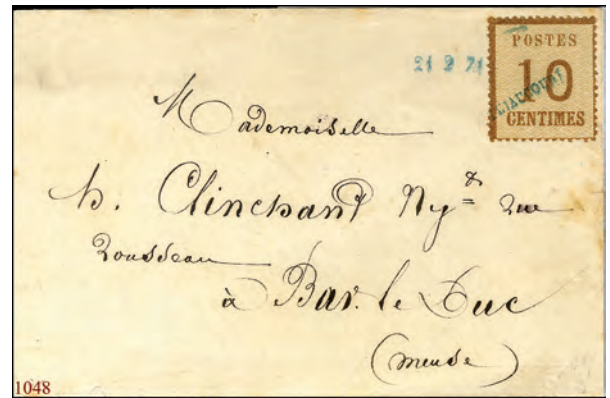 POSTES
10
CENTIMES
21 2 71
Mademoiselle
h. Clinchant Ng^te rue
Rousseau
à Bar. le Duc
(Meuse)
1048